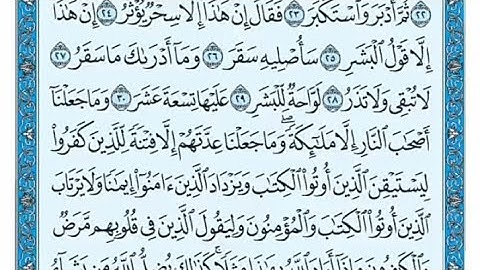 ٢٢ ثُمَّ أَدْبَرَ وَاسْتَكْبَرَ ٢٣ فَقَالَ إِنْ هَٰذَا إِلَّا سِحْرٌ يُؤْثَرُ ٢٤ إِنْ هَٰذَا
إِلَّا قَوْلُ الْبَشَرِ ٢٥ سَأُصْلِيهِ سَقَرَ ٢٦ وَمَا أَدْرَىٰكَ مَا سَقَرُ ٢٧
لَا تُبْقِي وَلَا تَذَرُ ٢٨ لَوَّاحَةٌ لِّلْبَشَرِ ٢٩ عَلَيْهَا تِسْعَةَ عَشَرَ ٣٠ وَمَا جَعَلْنَا
أَصْحَٰبَ النَّارِ إِلَّا مَلَٰٓئِكَةً ۙ وَمَا جَعَلْنَا عِدَّتَهُمْ إِلَّا فِتْنَةً لِّلَّذِينَ كَفَرُوا۟
لِيَسْتَيْقِنَ الَّذِينَ أُوتُوا۟ الْكِتَٰبَ وَيَزْدَادَ الَّذِينَ ءَامَنُوٓا۟ إِيمَٰنًا وَلَا يَرْتَابَ
الَّذِينَ أُوتُوا۟ الْكِتَٰبَ وَالْمُؤْمِنُونَ وَلِيَقُولَ الَّذِينَ فِي قُلُوبِهِم مَّرَضٌ
وَالْكَٰفِرُونَ مَاذَآ أَرَادَ اللَّهُ بِهَٰذَا مَثَلًا ۚ كَذَٰلِكَ يُضِلُّ اللَّهُ مَن يَشَآءُ